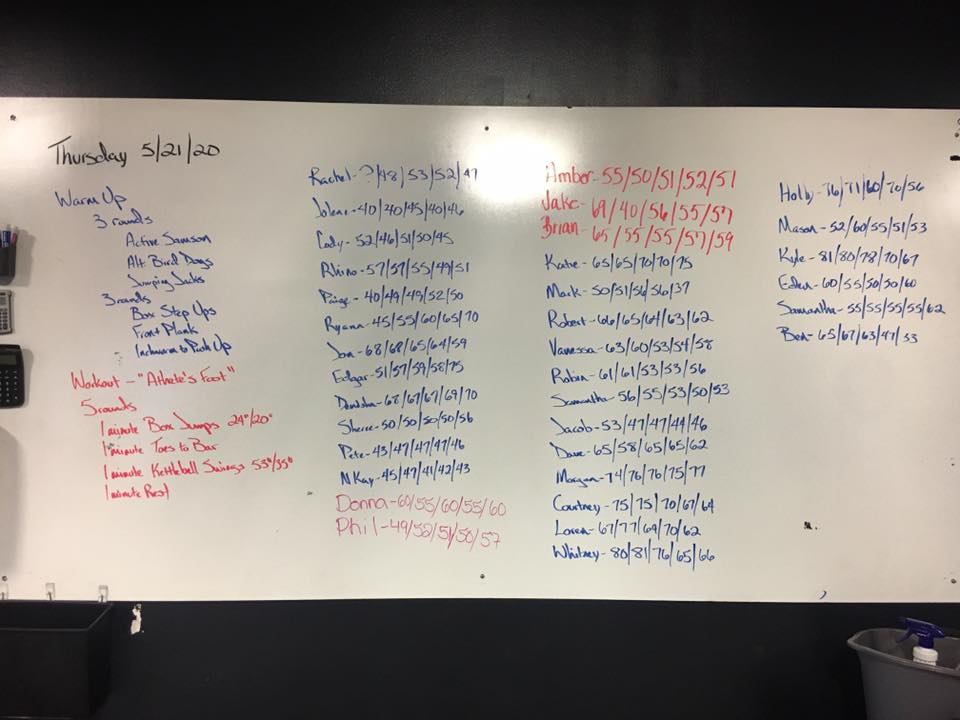 Thursday 5/21/20
Warm Up
3 rounds
Active Samson
Alt. Bird Dogs
Jumping Jacks
3 rounds
Box Step Ups
Front Plank
Inchworm to Push Up
Workout - "Athlete's Foot"
5 rounds
1 minute Box Jumps 24"/20"
1 minute Toes to Bar
1 minute Kettlebell Swings 53#/35#
1 minute Rest
Rachel - ?/48/53/52/47
Jolene - 40/40/45/40/46
Cody - 52/46/51/50/45
Rhino - 57/57/55/49/51
Paige - 40/49/49/52/50
Ryann - 45/55/60/65/70
Jon - 68/68/65/64/59
Edgar - 51/57/59/58/75
68/67/67/69/70
Sheree - 50/50/50/50/56
Pete - 43/47/47/47/46
N Kay - 45/47/41/42/43
Donna - 60/55/60/55/60
Phil - 49/52/51/50/57
Amber - 55/50/51/52/51
Jake - 69/40/56/55/57
Brian - 65/55/55/57/59
Katie - 65/65/70/70/75
Mark - 50/51/56/56/37
Robert - 66/65/64/63/62
Vanessa - 63/60/53/54/58
Robin - 61/61/53/53/56
Samantha - 56/55/53/50/53
Jacob - 53/47/47/44/46
Dave - 65/58/65/65/62
Morgan - 74/76/76/75/77
Courtney - 75/75/70/67/64
Loren - 67/77/69/70/62
Whitney - 80/81/76/65/66
Holly - 76/71/60/70/56
Mason - 52/60/55/51/53
Kyle - 81/80/78/70/67
Eden - 60/55/50/50/60
Samantha - 55/55/55/55/62
Ben - 65/67/63/47/53